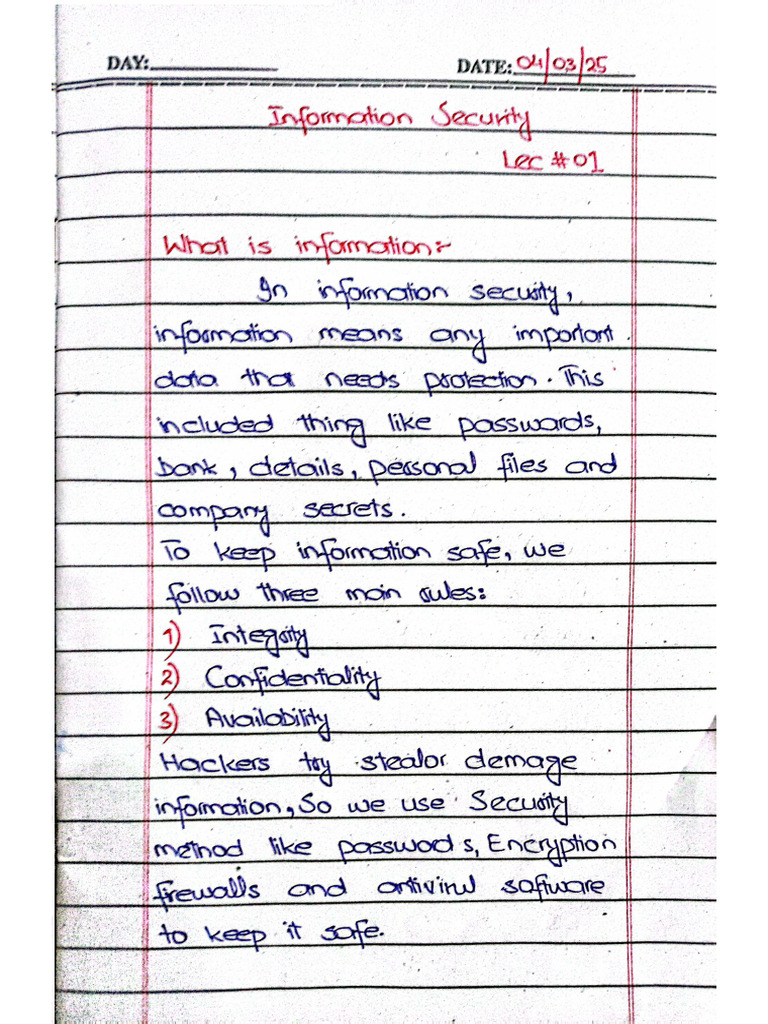 DAY:
DATE: 04/03/25
Information Security
Lec # 01
What is information:-
In information security,
information means any important
data that needs protection. This
included thing like passwards,
bank, details, personal files and
company secrets.
To keep information safe, we
follow three main rules:
1) Integrity
2) Confidentiality
3) Availability
Hackers try stealor demage
information, So we use Security
method like passwod s, Encryption
firewalls and antivirul saftware
to keep it safe.